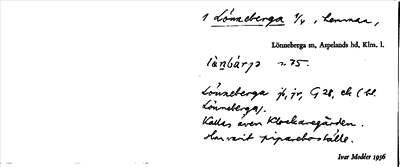 1 Lönneberga 1/4, hemman,
Lönneberga sn, Aspelands hd, Klm. l.
Lönneberga jb, jr, G 28, ek (bl.
Lönneberga).
Kallas även Klockaregården.
Har varit piparebostelle.
Ivar Modéer 1936